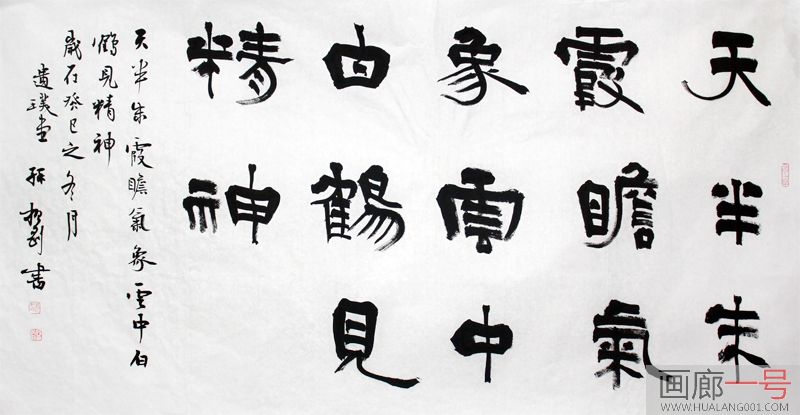 天半朱
霞瞻氣
象雲中
白鶴見
精神
天半朱霞瞻氣象雲中白
鶴見精神
歲在癸巳之冬月
遺璞堂 孫 書
画廊一号
WWW.HUALANG001.COM